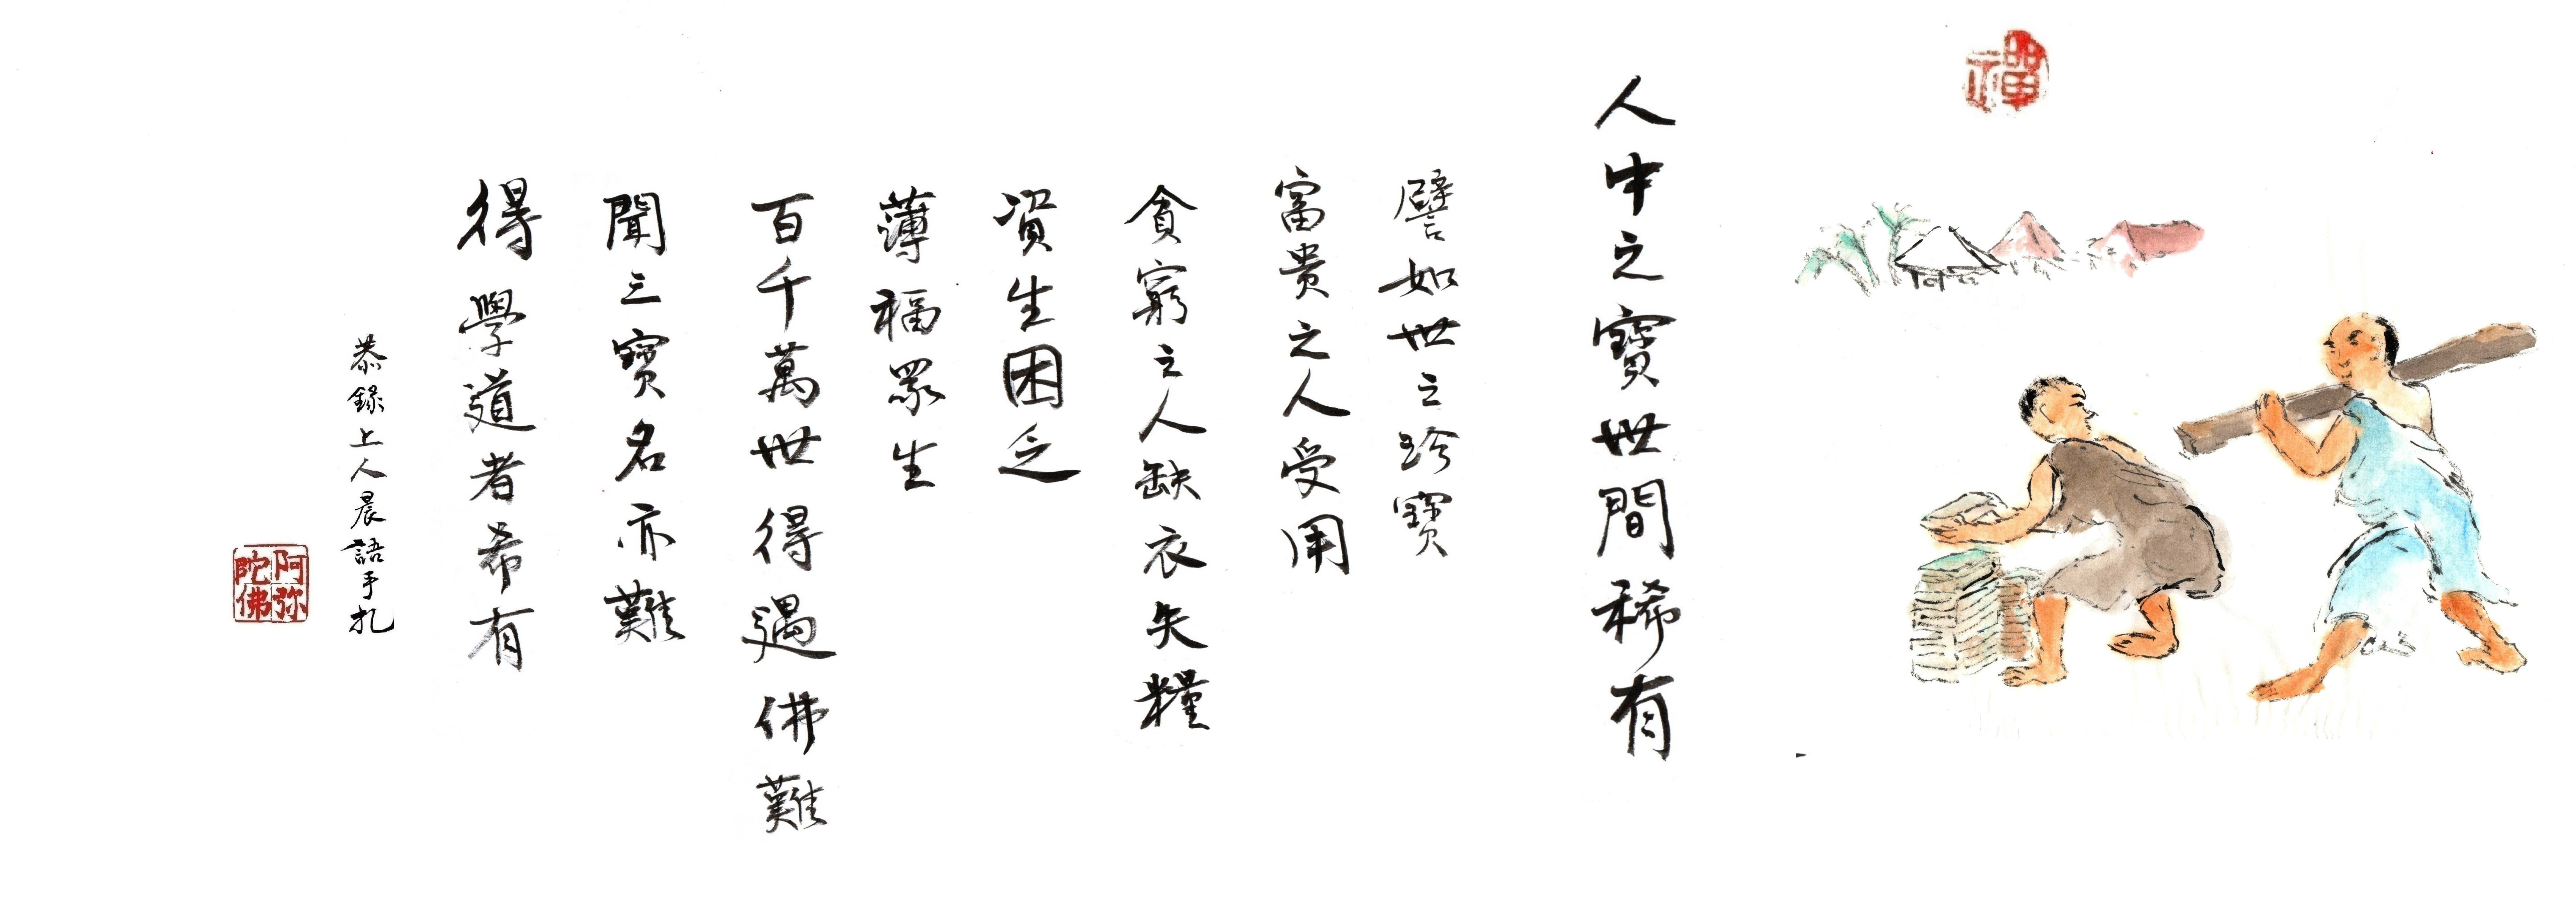 禪
人中之寶世間稀有
譬如世之珍寶
富貴之人受用
貪窮之人缺衣失糧
資生困乏
薄福眾生
百千萬世得遇佛難
聞三寶名亦難
得學道者希有
恭錄上人晨語手札
阿弥
陀佛